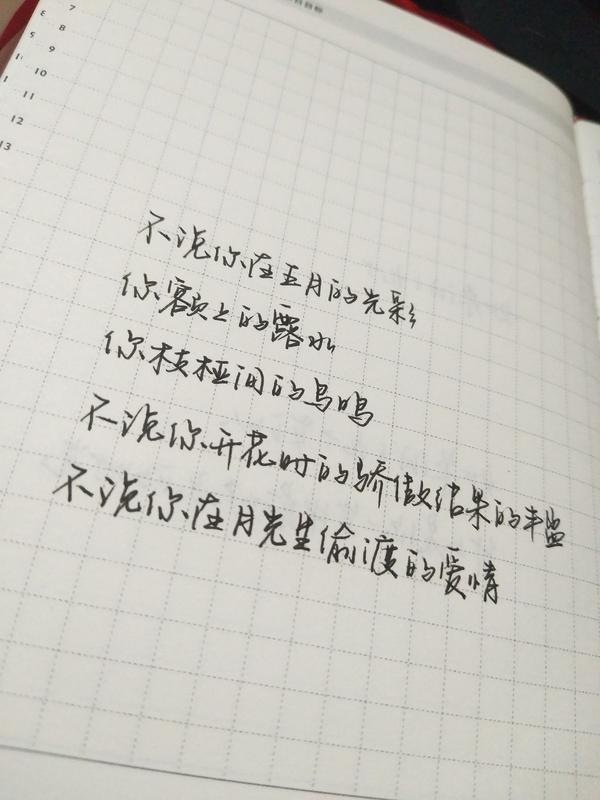 7
8
9
10
11
12
13
不说你在五月的光影
你额上的露水
你枝桠间的鸟鸣
不说你开花时的骄傲结果的丰盈
不说你在月光里偷渡的爱情